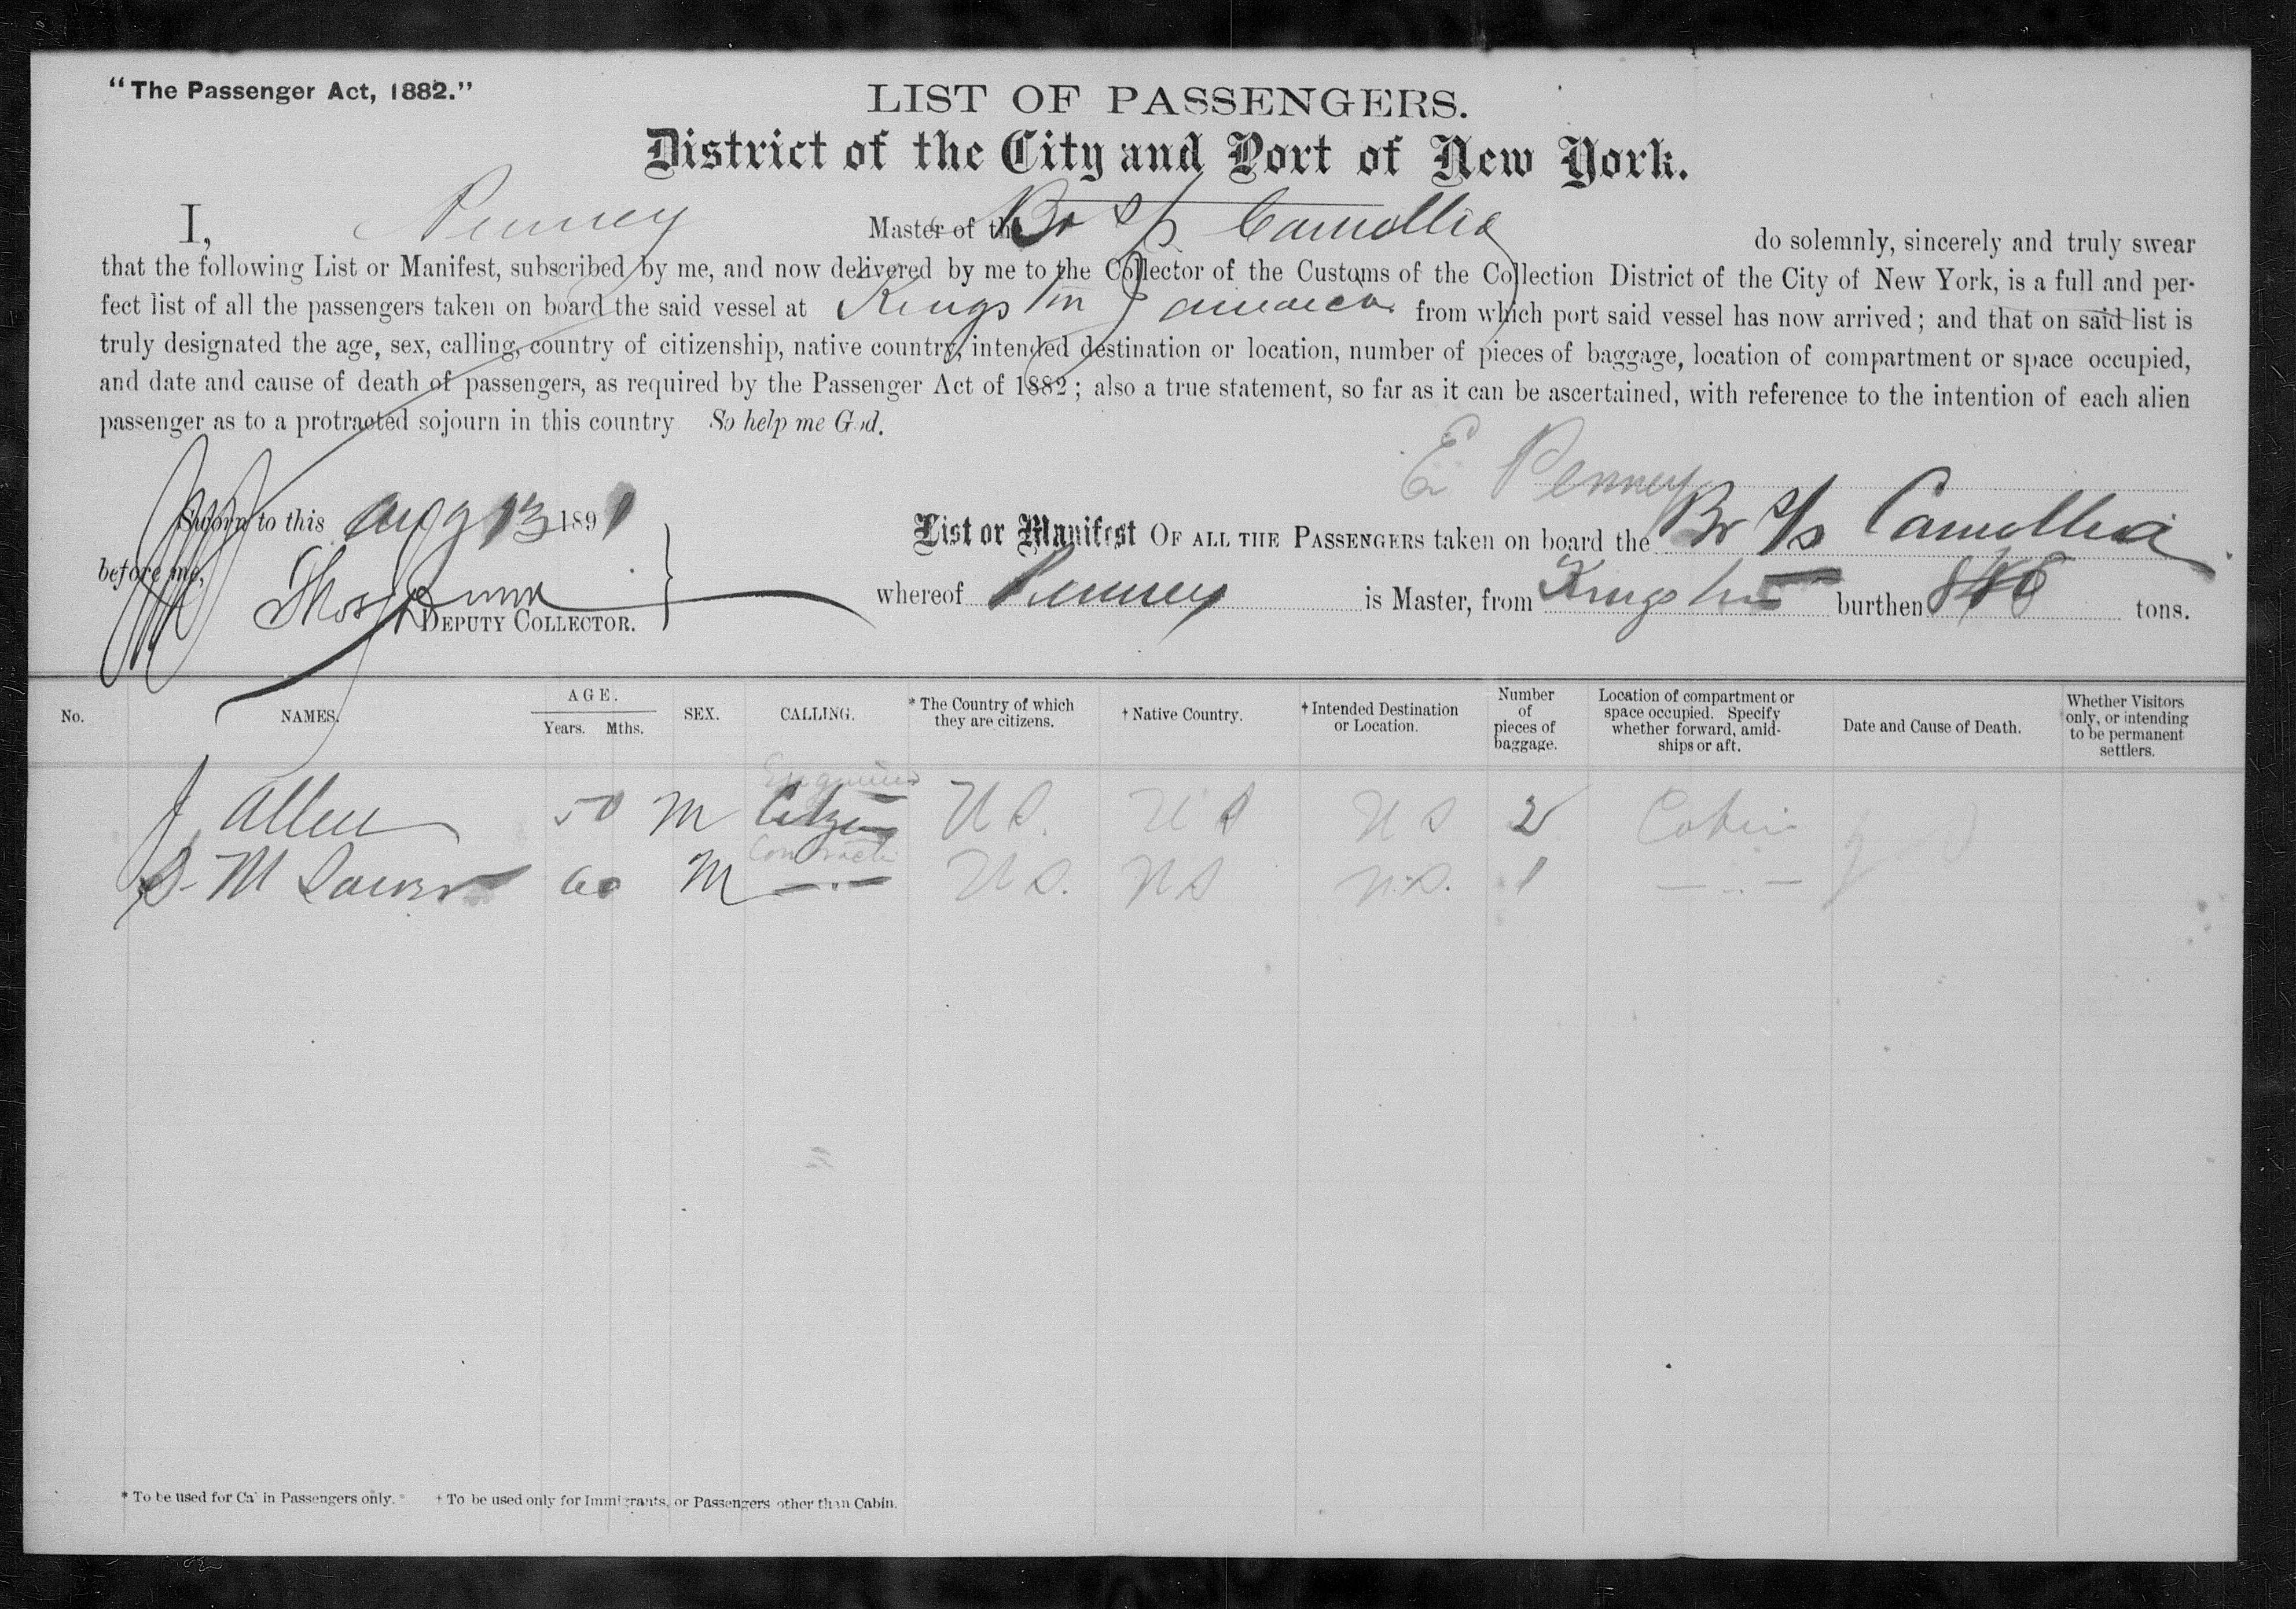 "The Passenger Act, 1882."
LIST OF PASSENGERS.
District of the City and Port of New York.
I, Penney Master of the Br S/s do solemnly, sincerely and truly swear
that the following List or Manifest, subscribed by me, and now delivered by me to the Collector of the Customs of the Collection District of the City of New York, is a full and per-
fect list of all the passengers taken on board the said vessel at Kingston Jamaica from which port said vessel has now arrived; and that on said list is
truly designated the age, sex, calling, country of citizenship, native country, intended destination or location, number of pieces of baggage, location of compartment or space occupied,
and date and cause of death of passengers, as required by the Passenger Act of 1882; also a true statement, so far as it can be ascertained, with reference to the intention of each alien
passenger as to a protracted sojourn in this country So help me God.
E Penney
Sworn to this Aug 13 1891
List or Manifest OF ALL THE PASSENGERS taken on board the Br S/s
before me,
Thos Dunn
DEPUTY COLLECTOR.
whereof Penney is Master, from Kingston burthen tons.
No. NAMES. AGE. Years. Mths. SEX. CALLING. * The Country of which they are citizens. † Native Country. † Intended Destination or Location. Number of pieces of baggage. Location of compartment or space occupied. Specify whether forward, amid-ships or aft. Date and Cause of Death. Whether Visitors only, or intending to be permanent settlers.
Engineer
J Allen 50 M Citizen U S. U S U S 2 Cabin
S. M 60 M — . — U S. U S U.S. 1 — .. —
* To be used for Cabin Passengers only. † To be used only for Immigrants, or Passengers other than Cabin.